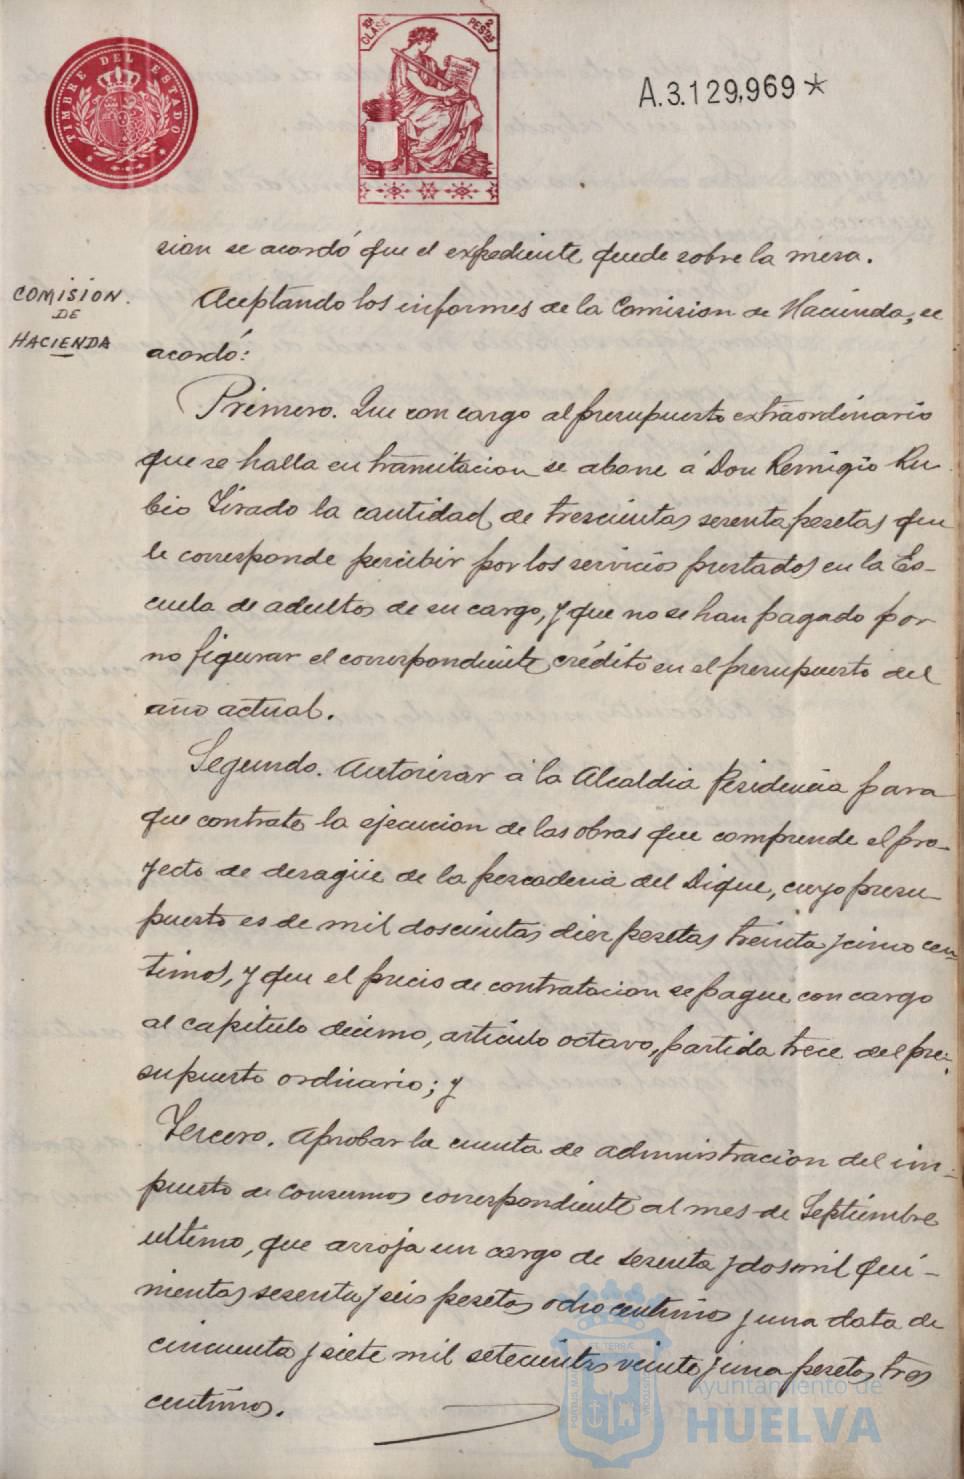 TIMBRE DEL ESTADO
10ª CLASE
2 PESTAS
A.3.129,969*
sion se acordó que el expediente quede sobre la mesa.
COMISION.
DE
HACIENDA
Aceptando los informes de la Comision de Hacienda, se
acordó:
Primero. Que con cargo al presupuesto extraordinario
que se halla en tramitacion se abone á Don Remigio Ru-
bio Tirado la cantidad de trescientas sesenta pesetas que
le corresponde percibir por los servicios prestados en la Es-
cuela de adultos de su cargo, y que no se han pagado por
no figurar el correspondiente crédito en el presupuesto del
año actual.
Segundo. Autorizar á la Alcaldia Presidencia para
que contrate la ejecucion de las obras que comprende el pro-
yecto de desagüe de la pescaderia del Dique, cuyo presu-
puesto es de mil doscientas diez pesetas treinta y cinco cen-
timos, y que el precio de contratacion se pague con cargo
al capitulo decimo, articulo octavo, partida trece del pre-
supuesto ordinario; y
Tercero. Aprobar la cuenta de administracion del im-
puesto de Consumos correspondiente al mes de Septiembre
ultimo, que arroja un cargo de sesenta y dos mil qui-
nientas sesenta y seis pesetas ocho centimos y una data de
cincuenta y siete mil setecientas veinte y una pesetas tres
centimos.
Ayuntamiento de
HUELVA